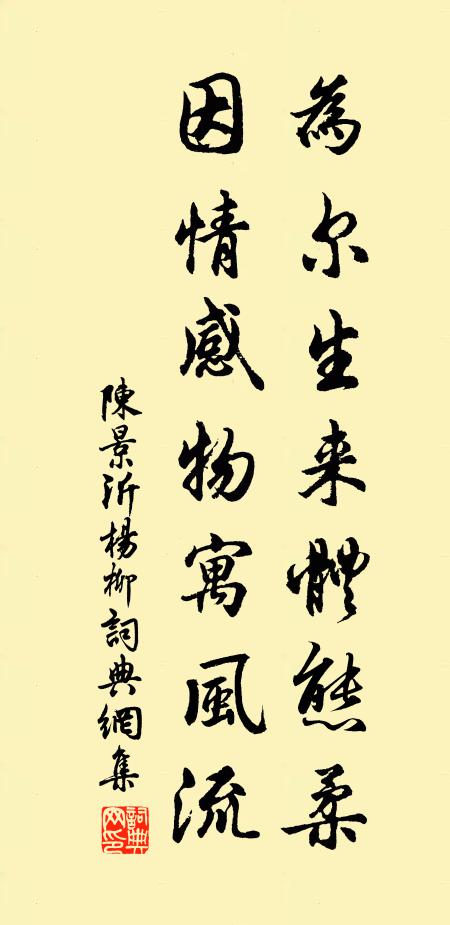 為尔生来體態柔
因情感物寓風流
陳景沂楊柳詞典網集
詞典網印